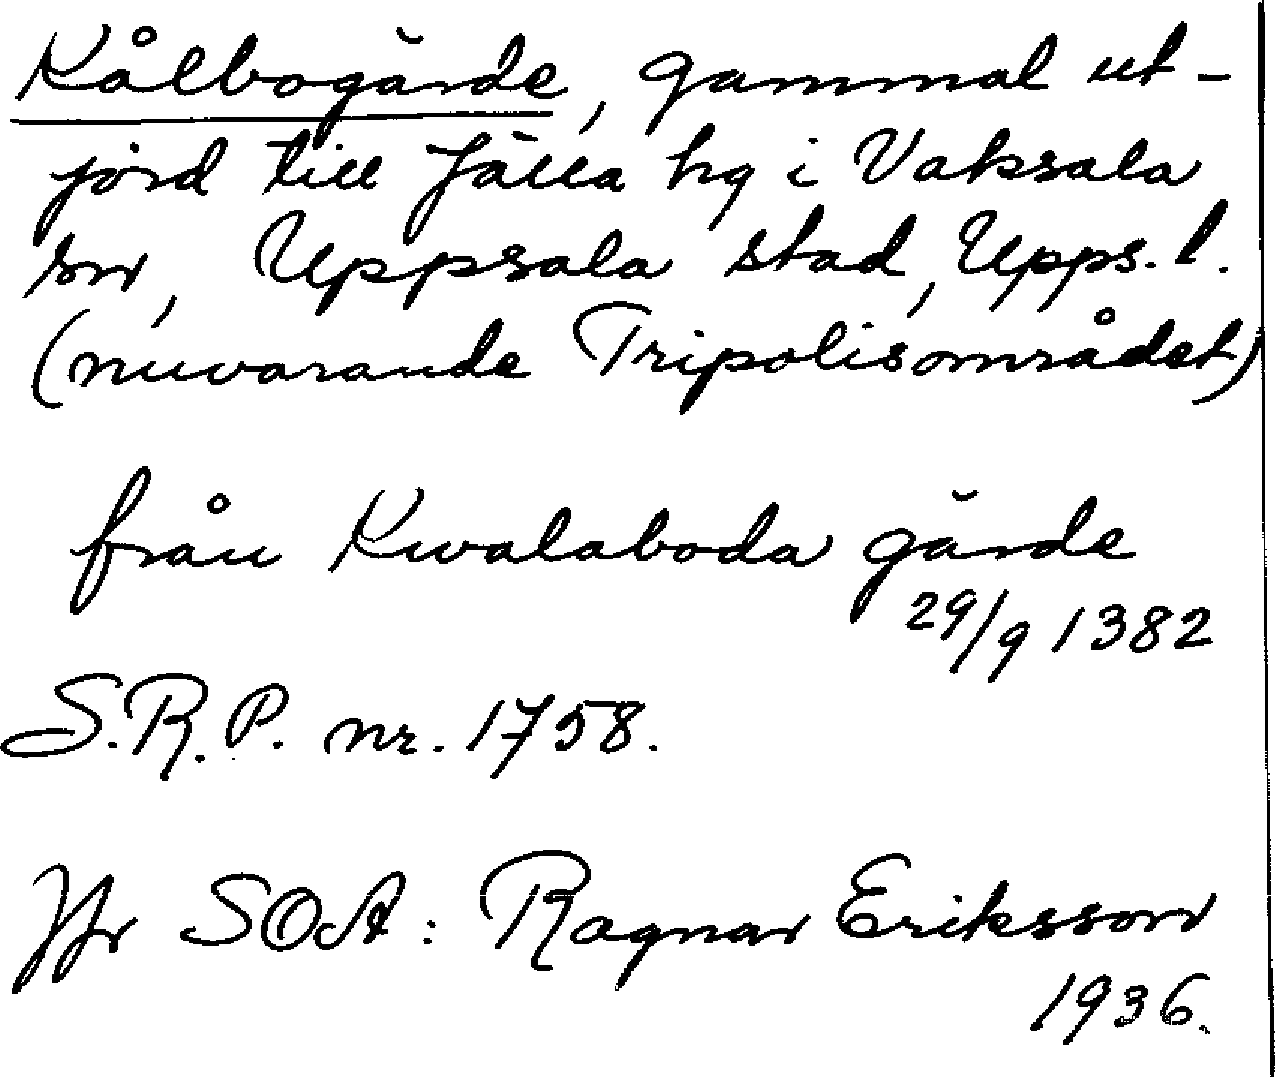 Kålbogärde, gammal ut-
jord till Jälla hg i Vaksala
sn, Uppsala stad, Upps. l.
(nuvarande Tripolisområdet)
från Kwalaboda gärde
29/9 1382
S.R.P. nr. 1758.
Jfr SOA: Ragnar Eriksson
1936.